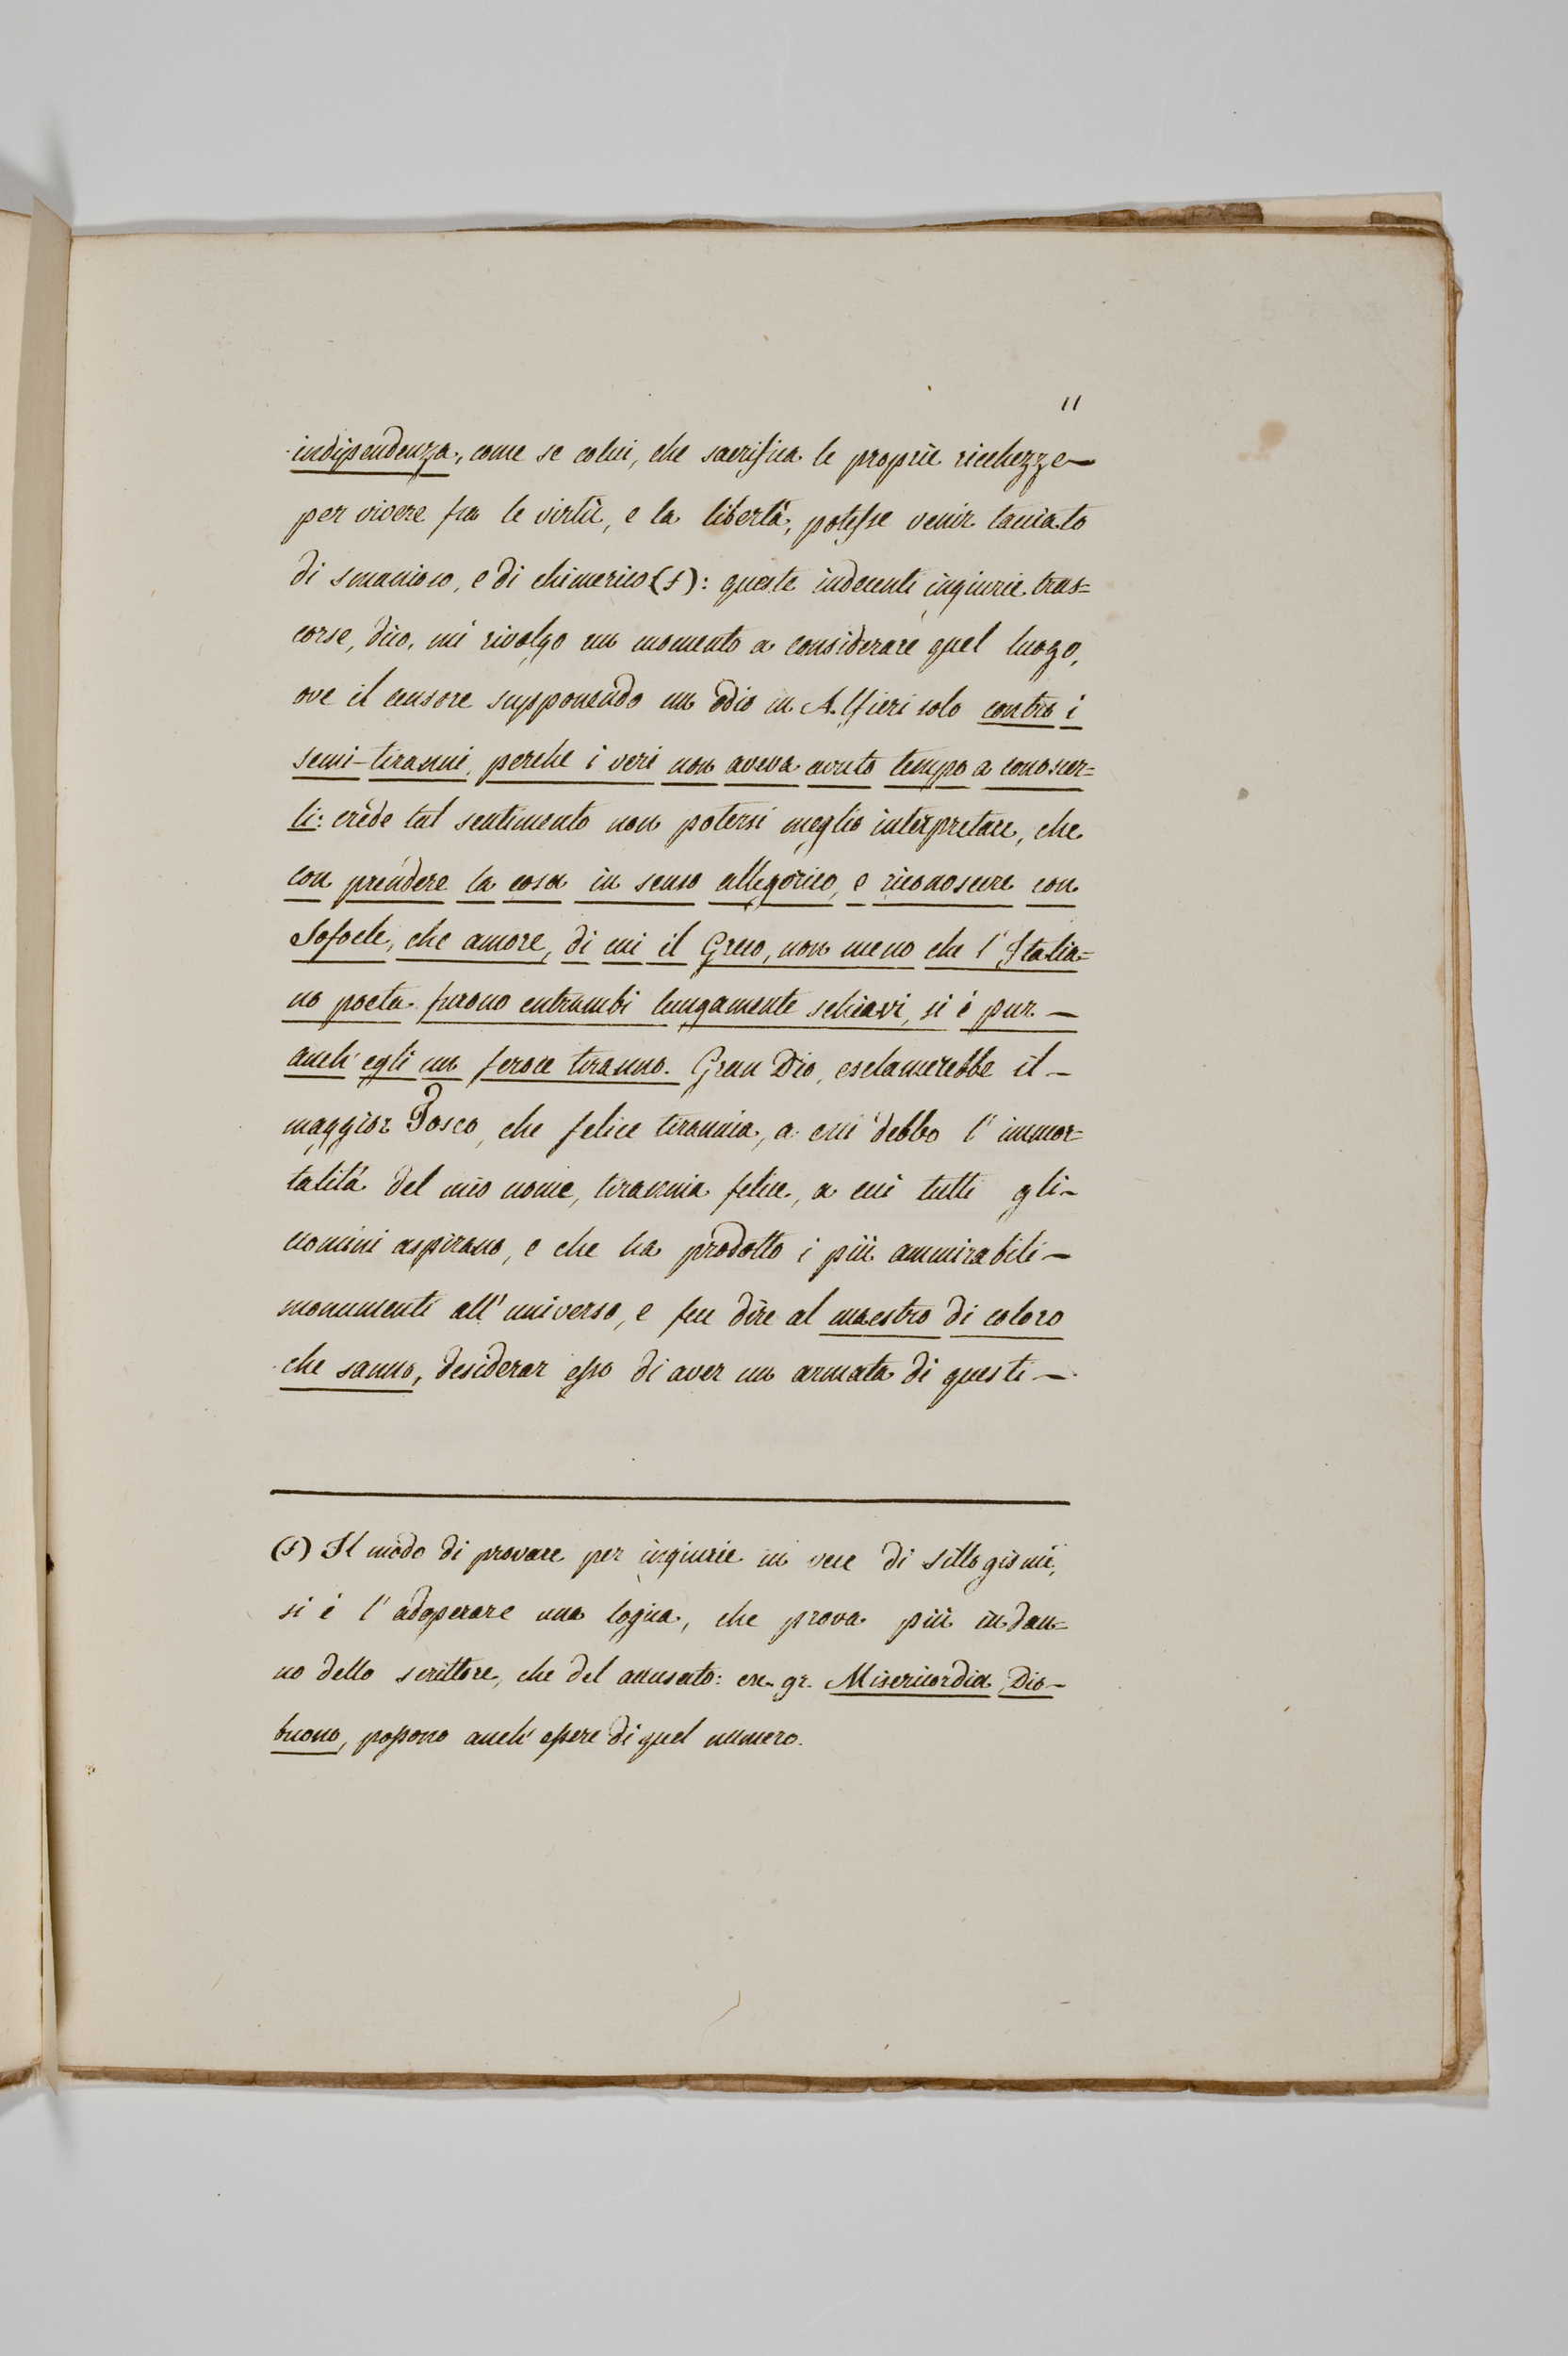 11
indipendenza, come se colui, che sacrifica le proprie ricchezze—
per vivere fra le virtù, e la libertà, potesse venir tacciato
di smanioso, e di chimerico (f): queste indecenti ingiurie tras=
corse, dico, mi rivolgo un momento a considerare quel luogo,
ove il censore supponendo un odio in Alfieri solo contro i
semi-tiranni, perche i veri non aveva avuto tempo a conoscer=
li: crede tal sentimento non potersi meglio interpretare, che
con prendere la cosa in senso allegorico, e riconoscere con
Sofocle, che amore, di cui il Greco, non meno che l'Italia=
no poeta furono entrambi lungamente schiavi, si è pur—
anch' egli un feroce tiranno. Gran Dio, esclamerebbe il—
maggior Tosco, che felice tirannia, a cui debbo l'immor=
talità del mio nome, tirannia felice, a cui tutti gli—
uomini aspirano, e che ha prodotto i più ammirabili—
monumenti all'universo, e feu dire al maestro di coloro
che sanno, desiderar esso di aver un armata di questi—
(f) Il modo di provare per ingiurie in vece di sillogismi,
si è l'adoperare una logica, che prova più in dan=
no dello scrittore, che del accusato: ex. gr. Misericordia Dio—
buono, possono anch' essere di quel numero.